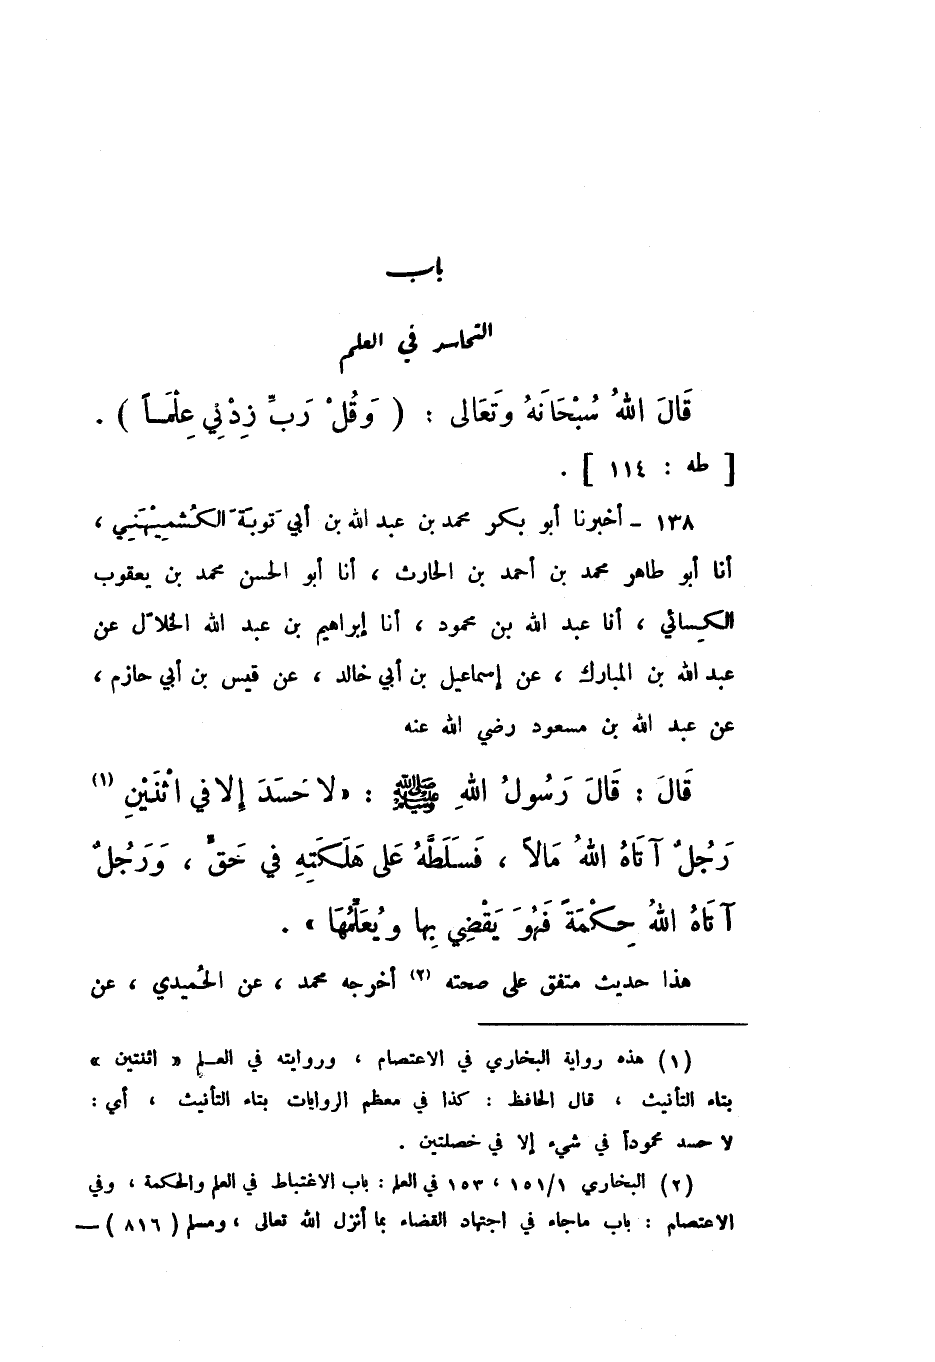 باب
التحاسد في العلم
قَالَ اللهُ سُبْحَانَهُ وَتَعَالى : ( وَقُلْ رَبِّ زِدْنِي عِلْمَــاً ) .
[ طه : ١١٤ ] .
١٣٨ ـ أخبرنا أبو بكر محمد بن عبد الله بن أبي تَوبَةَ الكُشمِيْهَنِي ،
أنا أبو طاهر محمد بن أحمد بن الحارث ، أنا أبو الحسن محمد بن يعقوب
الكِسائي ، أنا عبد الله بن محمود ، أنا إبراهيم بن عبد الله الخلاّل عن
عبد الله بن المبارك ، عن إسماعيل بن أبي خالد ، عن قيس بن أبي حازم ،
عن عبد الله بن مسعود رضي الله عنه
قَالَ : قَالَ رَسُولُ اللهِ ﷺ : « لا حَسَدَ إلا في اثْنَيْنِ (١)
رَجُلٌ آتَاهُ اللهُ مَالاً ، فَسَلَّطَهُ عَلى هَلَكَتِهِ في حَقٍّ ، وَرَجُلٌ
آتَاهُ اللهُ حِكْمَةً فَهُوَ يَقْضِي بِها ويُعَلِّمُهَا » .
هذا حديث متفق على صحته (٢) أخرجه محمد ، عن الحُميدي ، عن
(١) هذه رواية البخاري في الاعتصام ، وروايته في العــلم « اثنتين »
بتاء التأنيث ، قال الحافظ : كذا في معظم الروايات بتاء التأنيث ، أي :
لا حسد محموداً في شيء إلا في خصلتين .
(٢) البخاري ١٥١/١ ، ١٥٣ في العلم : باب الاغتباط في العلم والحكمة ، وفي
الاعتصام : باب ماجاء في اجتهاد القضاء بما أنزل الله تعالى ، ومسلم ( ٨١٦ ) —